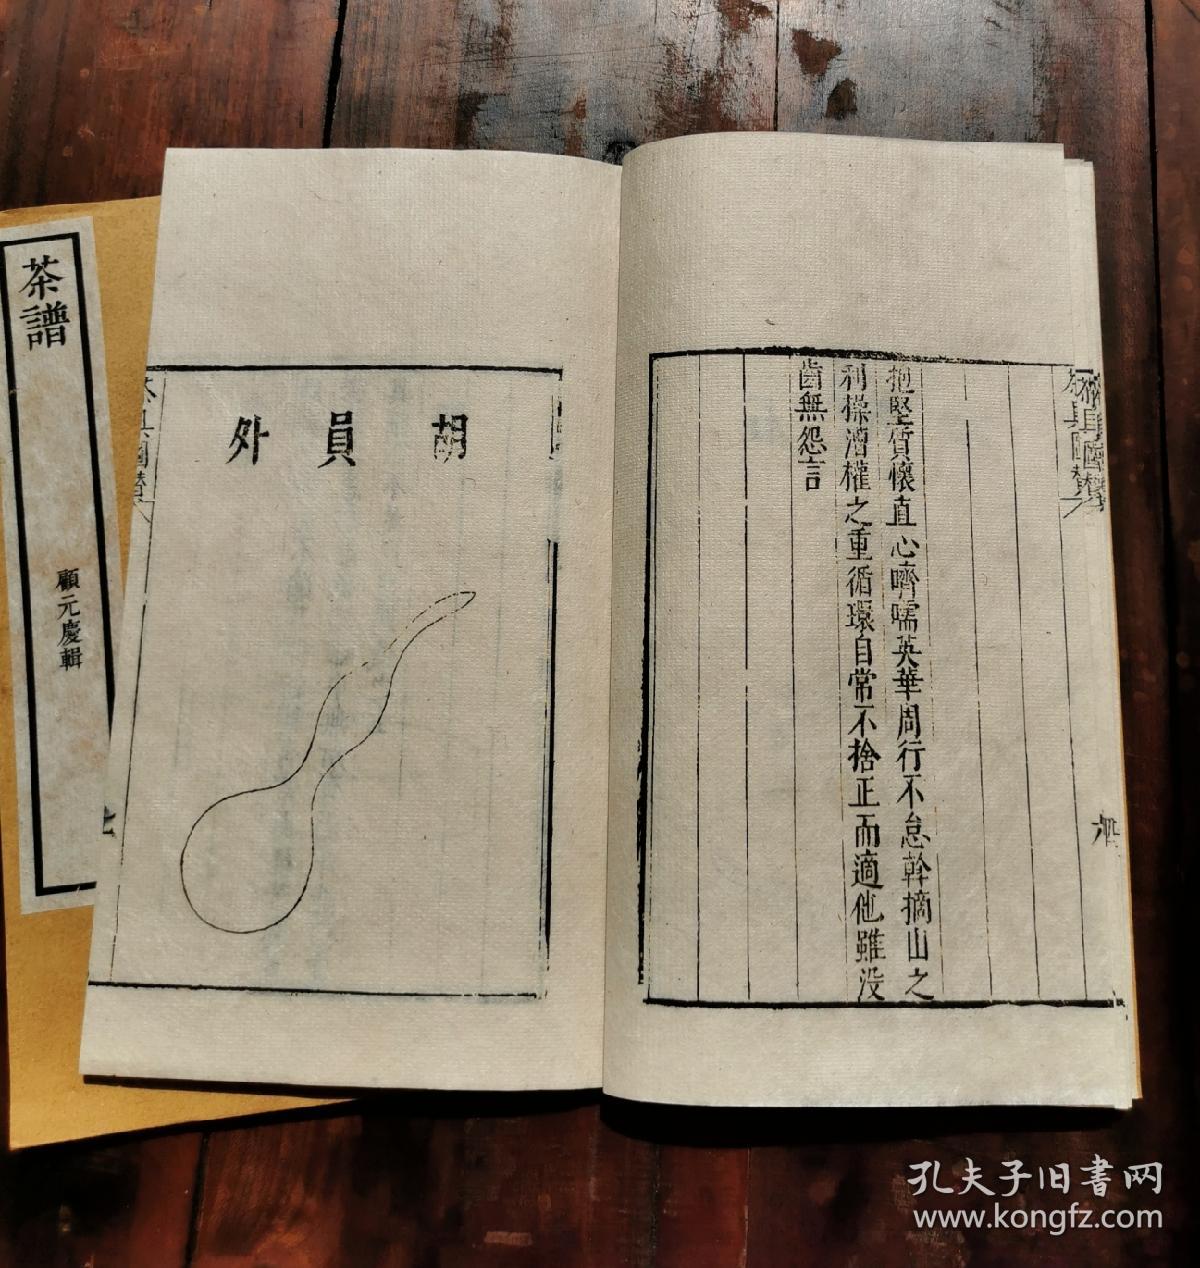 抱堅質懷直心嚌嚅英華周行不怠幹摘山之
利操漕權之重循環自常不捨正而適他雖没
齒無怨言
胡員外
茶譜
顧元慶輯
孔夫子旧书网
www.kongfz.com